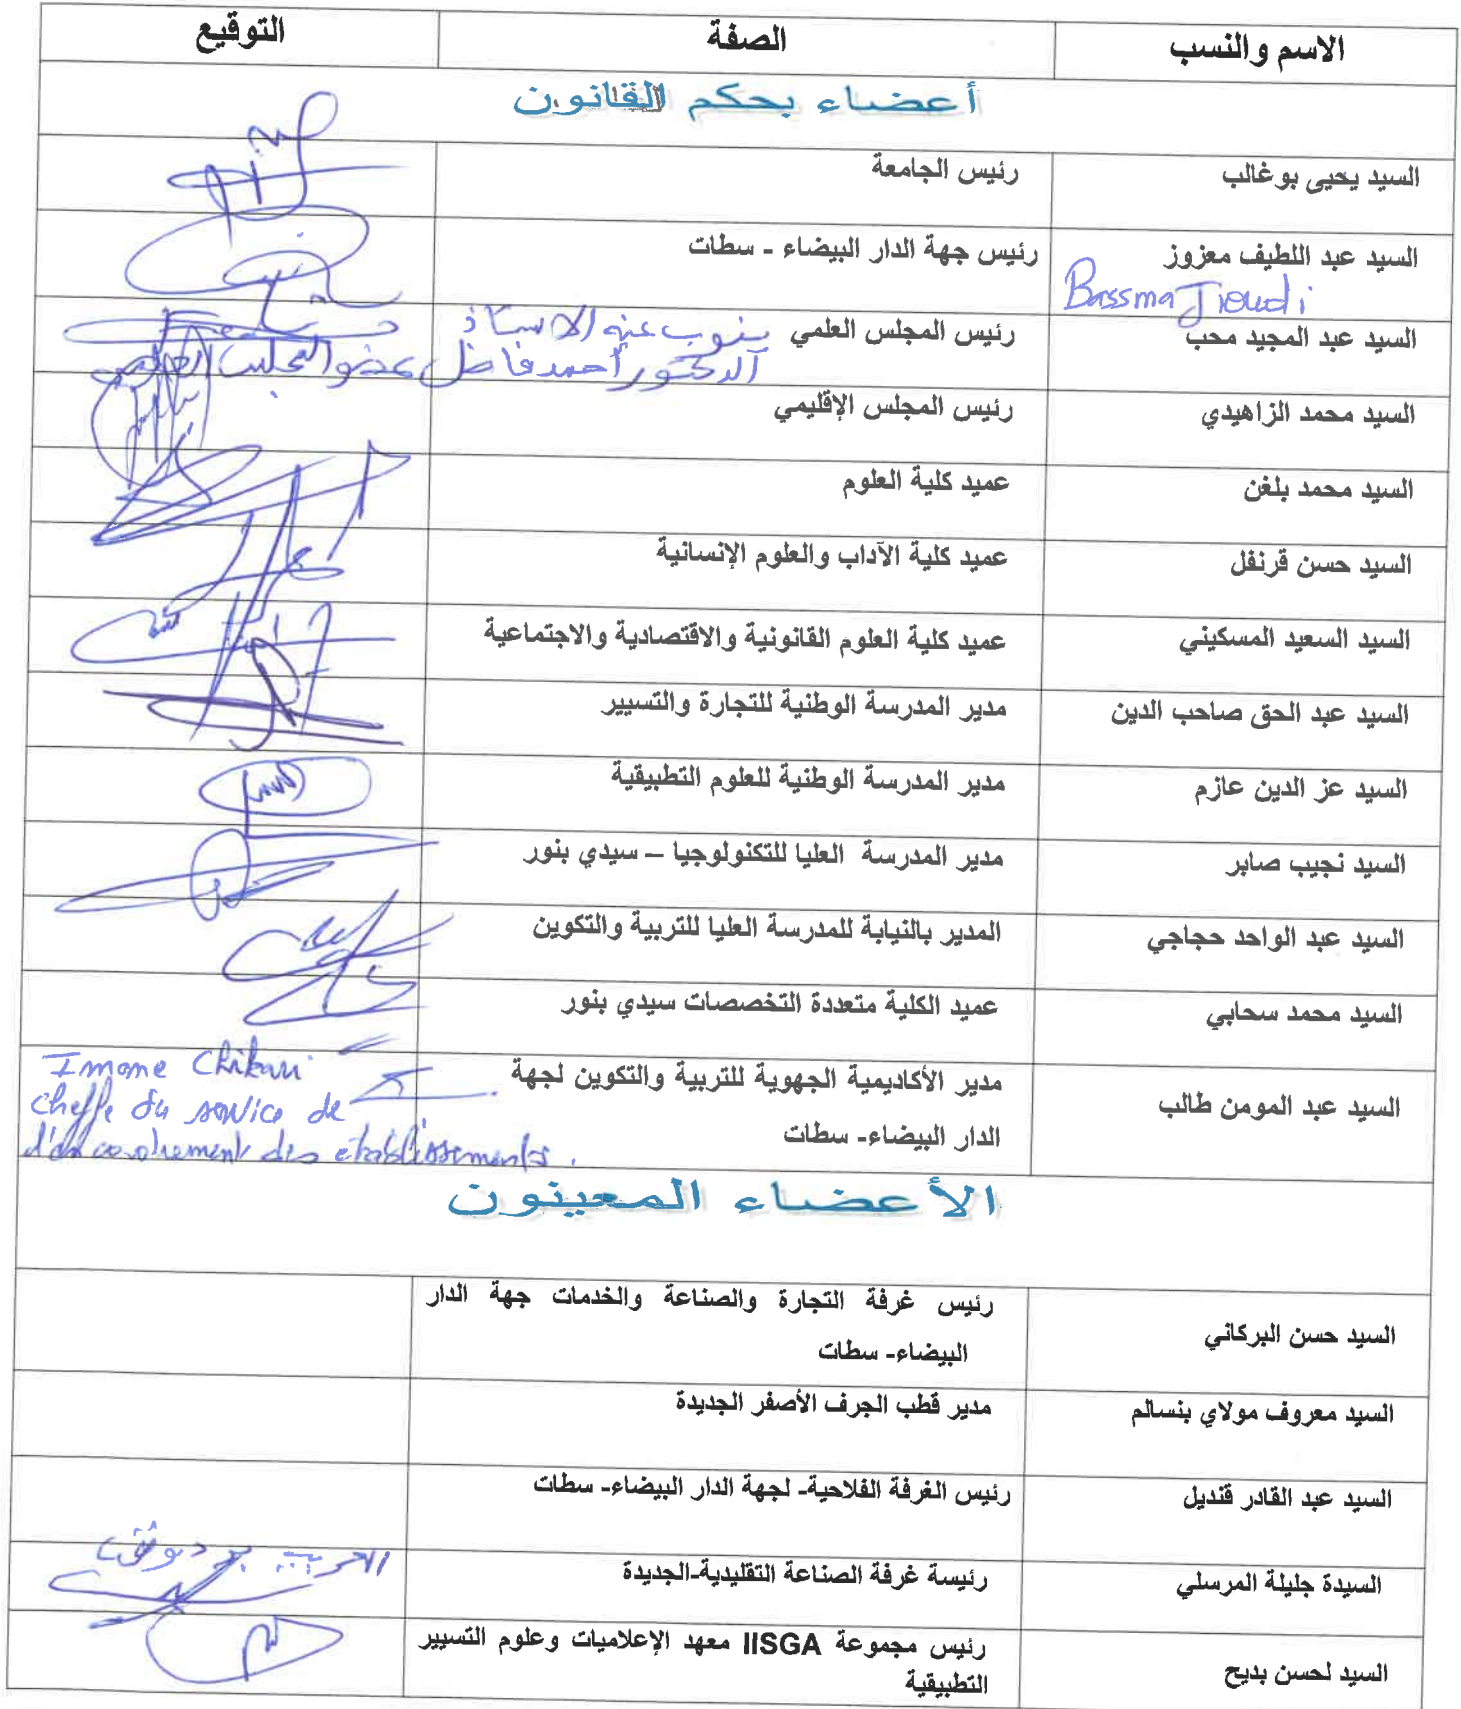 الاسم والنسب الصفة التوقيع
أعضاء بحكم القانون
السيد يحيى بوغالب رئيس الجامعة
السيد عبد اللطيف معزوز رئيس جهة الدار البيضاء - سطات
Bassma Jioudi
السيد عبد المجيد محب رئيس المجلس العلمي ينوب عنه الاستاذ
الدكتور أحمد فاضل عضو المجلس العلمي
السيد محمد الزاهيدي رئيس المجلس الإقليمي
السيد محمد بلغن عميد كلية العلوم
السيد حسن قرنفل عميد كلية الآداب والعلوم الإنسانية
السيد السعيد المسكيني عميد كلية العلوم القانونية والاقتصادية والاجتماعية
السيد عبد الحق صاحب الدين مدير المدرسة الوطنية للتجارة والتسيير
السيد عز الدين عازم مدير المدرسة الوطنية للعلوم التطبيقية
السيد نجيب صابر مدير المدرسة العليا للتكنولوجيا – سيدي بنور
السيد عبد الواحد حجاجي المدير بالنيابة للمدرسة العليا للتربية والتكوين
السيد محمد سحابي عميد الكلية متعددة التخصصات سيدي بنور
السيد عبد المومن طالب مدير الأكاديمية الجهوية للتربية والتكوين لجهة
الدار البيضاء- سطات
Imane Chikari
cheffe du service de
des établissements.
الأعضاء المعينون
السيد حسن البركاني رئيس غرفة التجارة والصناعة والخدمات جهة الدار
البيضاء- سطات
السيد معروف مولاي بنسالم مدير قطب الجرف الأصفر الجديدة
السيد عبد القادر قنديل رئيس الغرفة الفلاحية- لجهة الدار البيضاء- سطات
السيدة جليلة المرسلي رئيسة غرفة الصناعة التقليدية-الجديدة
السيد لحسن بديح رئيس مجموعة IISGA معهد الإعلاميات وعلوم التسيير
التطبيقية